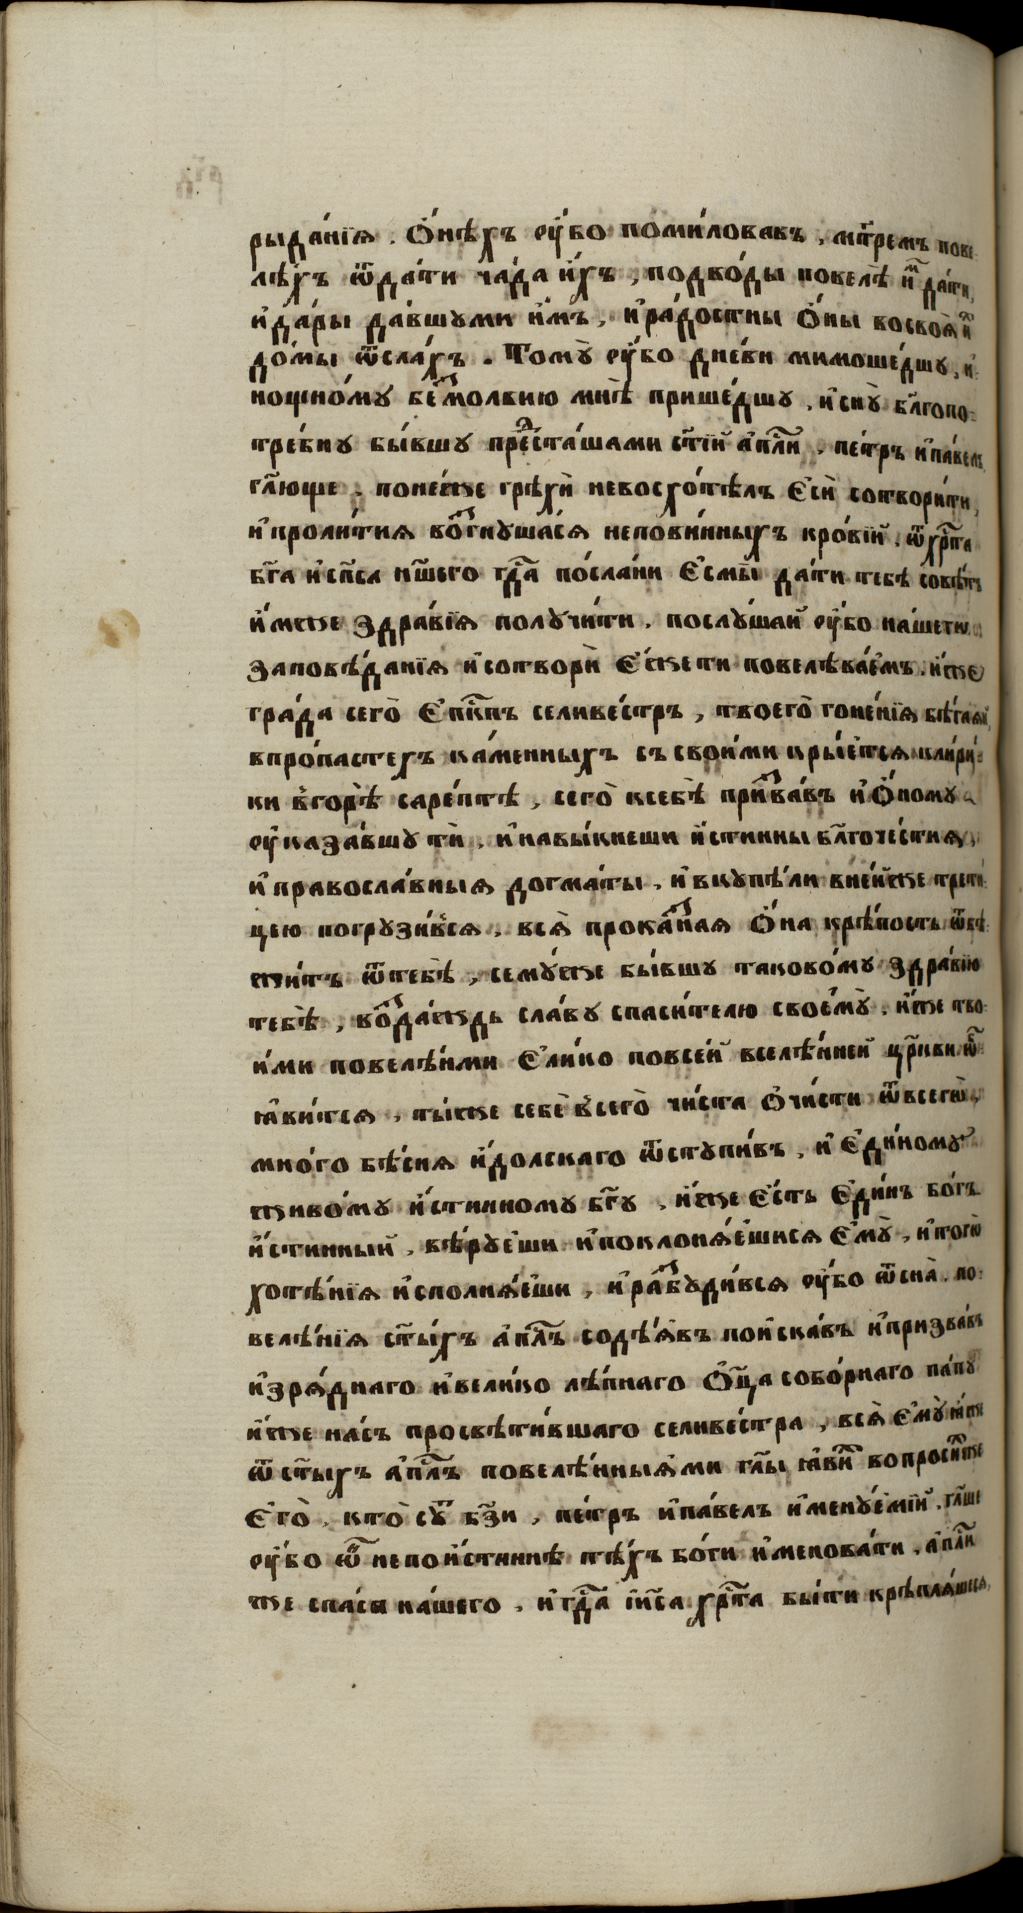 рыда́нїя . Ѻ҆нѣ́хъ ᲂу҆́бо поми́ловавъ , мт҃ремъ пове
лѣ́хъ ѿда́ти ча́да и҆́хъ , подво́ды повелѣ̀ и҆мⷨ да́ти ,
и҆ да́ры да́вшуми и҆̀мъ , и҆ра́достны Ѻ҆́ны восвоѧ̀
до́мы ѿсла́хъ . Тому̀ ᲂу҆́бо дне́ви мимоше́дшу , и҆
нощно́му беⷥмо́лвию мнѣ̀ прише́дшу , и҆сну̀ бл҃гопо
тре́бну бы́вшу преⷣста́шами ст҃ї́и а҆пⷭ҇ли , пе́тръ и҆па́велъ
гл҃юще . поне́же грѣхѝ невосхотѣ́лъ Є҆сѝ сотвори́ти ,
и҆проли́тия воⷥгнуша́сѧ непови́нныхъ кро́вїй . ѿхрⷭ҇та̀
бг҃а и҆сп҃са нш҃его гдⷭ҇а по́слани Є҆смы̀ да́ти тебѣ̀ совѣ́тъ
и҆́мже здра́вїѧ получи́ти . послу́шай ᲂу҆́бо на́шегѡ
заповѣ́данїѧ и҆сотворѝ Є҆́жети повелѣва́емъ . и҆́же
гра́да сего̀ Є҆пⷭ҇кпъ селиве́стръ , твоего̀ гоне́нїѧ бѣ́гаѧ
впро́пастехъ ка́менныхъ съ свои́ми кры́етсѧ кли́ри
ки вгорѣ̀ саре́птѣ , сего̀ ксебѣ̀ приⷥва́въ и҆Ѻ҆́ному
ᲂу҆каза́вшу тѝ , и҆навы́кнеши и҆́стинны бл҃гоче́стиѧ ,
и҆правосла́вныѧ догма́ты , и҆вкупѣ́ли вне́йже трети
цею погрузи́всѧ , всѧ̀ прокаⷤ҇наѧ Ѻ҆́на крѣ́пость ѿбѣ
жи́тъ ѿтебѐ , сему́же бы́вшу таково́му здра́вїю
тебѣ̀ , воⷥда́ждь сла́ву спаси́телю своему̀ . и҆́же тво
и́ми повелѣ́ними Є҆ли́ко повсе́й вселѣ́нней цр҃кви ѡ҆
ꙗ҆ви́тсѧ , ты́же себѐ всего̀ чи́ста Ѻ҆чи́сти ѿвсегѡ̀ ,
мно́го бѣ́сиѧ и҆́долскаго ѿступи́въ , и҆ Є҆ди́ному
живо́му и҆́стинному бг҃у , и҆́же Є҆́сть Є҆ди́нъ бо́гъ
и҆́стинный , вѣ́руеши и҆поклонѧ́ешисѧ Є҆му̀ , и҆тогѡ̀
хотѣ́нїѧ и҆сполнѧ́еши , и҆раⷥбуди́всѧ ᲂу҆́бо ѿсна̀ . по
велѣ́нїѧ ст҃ы́хъ а҆пⷭ҇лъ содѣ́ѧвъ поиска́въ и҆призва́въ
и҆зрѧ́днаго и҆вели́ко лѣ́пнаго Ѻ҆ц҃а собо́рнаго па́пу
и҆́же на́съ просвѣти́вшаго селиве́стра , всѧ̀ Є҆му̀
ѿ ст҃ы́хъ а҆пⷭ҇лъ повелѣ́нныѧми гл҃ы ꙗ҆виⷯ вопроси́хже
Є҆го̀ , кто̀ суⷮ бз҃и , пе́тръ и҆па́велъ и҆мену́емїи . гл҃ше
ᲂу҆́бо ѡ҆ непои́стиннѣ тѣ́хъ бо́ги и҆менова́ти . а҆пⷭ҇ли
же спа́са на́шего , и҆ гдⷭ҇а і҆и҃са хрⷭ҇та̀ бы́ти крѣплѧ́шесѧ